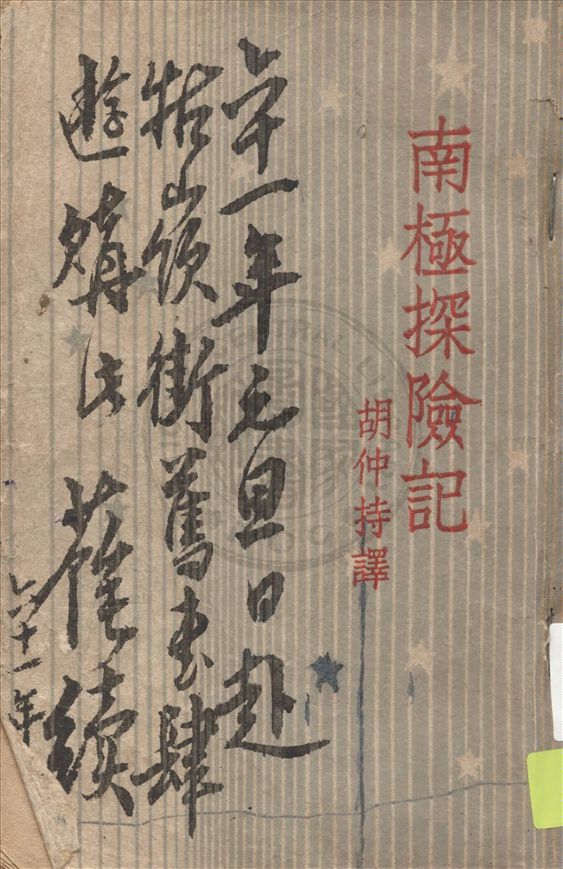 南極探險記
胡仲持譯
六十一年元旦日赴
牯嶺街舊書肆
遊購此 續
六十一年